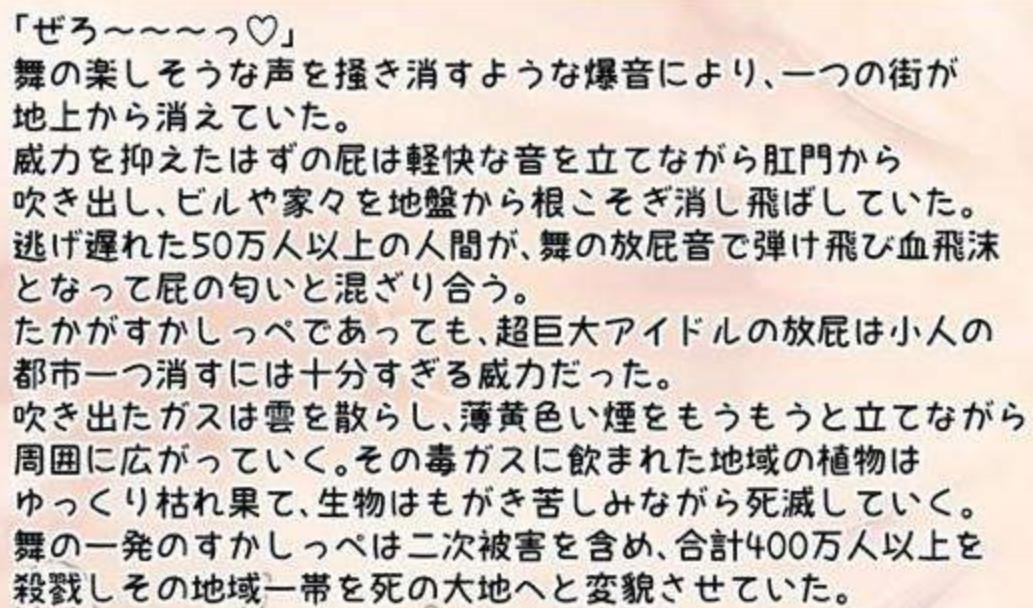 「ぜろ～～～～っ♡」
舞の楽しそうな声を掻き消すような爆音により、一つの街が
地上から消えていた。
威力を抑えたはずの屁は軽快な音を立てながら肛門から
吹き出し、ビルや家々を地盤から根こそぎ消し飛ばしていた。
逃げ遅れた50万人以上の人間が、舞の放屁音で弾け飛び血飛沫
となって屁の匂いと混ざり合う。
たかがすかしっぺであっても、超巨大アイドルの放屁は小人の
都市一つ消すには十分すぎる威力だった。
吹き出たガスは雲を散らし、薄黄色い煙をもうもうと立てながら
周囲に広がっていく。その毒ガスに飲まれた地域の植物は
ゆっくり枯れ果て、生物はもがき苦しみながら死滅していく。
舞の一発のすかしっぺは二次被害を含め、合計400万人以上を
殺戮しその地域一帯を死の大地へと変貌させていた。